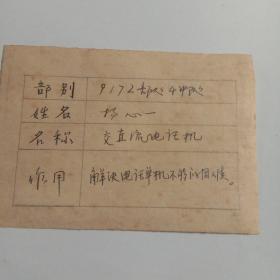 部别 9172部队4中队
姓名 杨心一
名称 交直流电话机
作用 解决电话单机不够的困难。